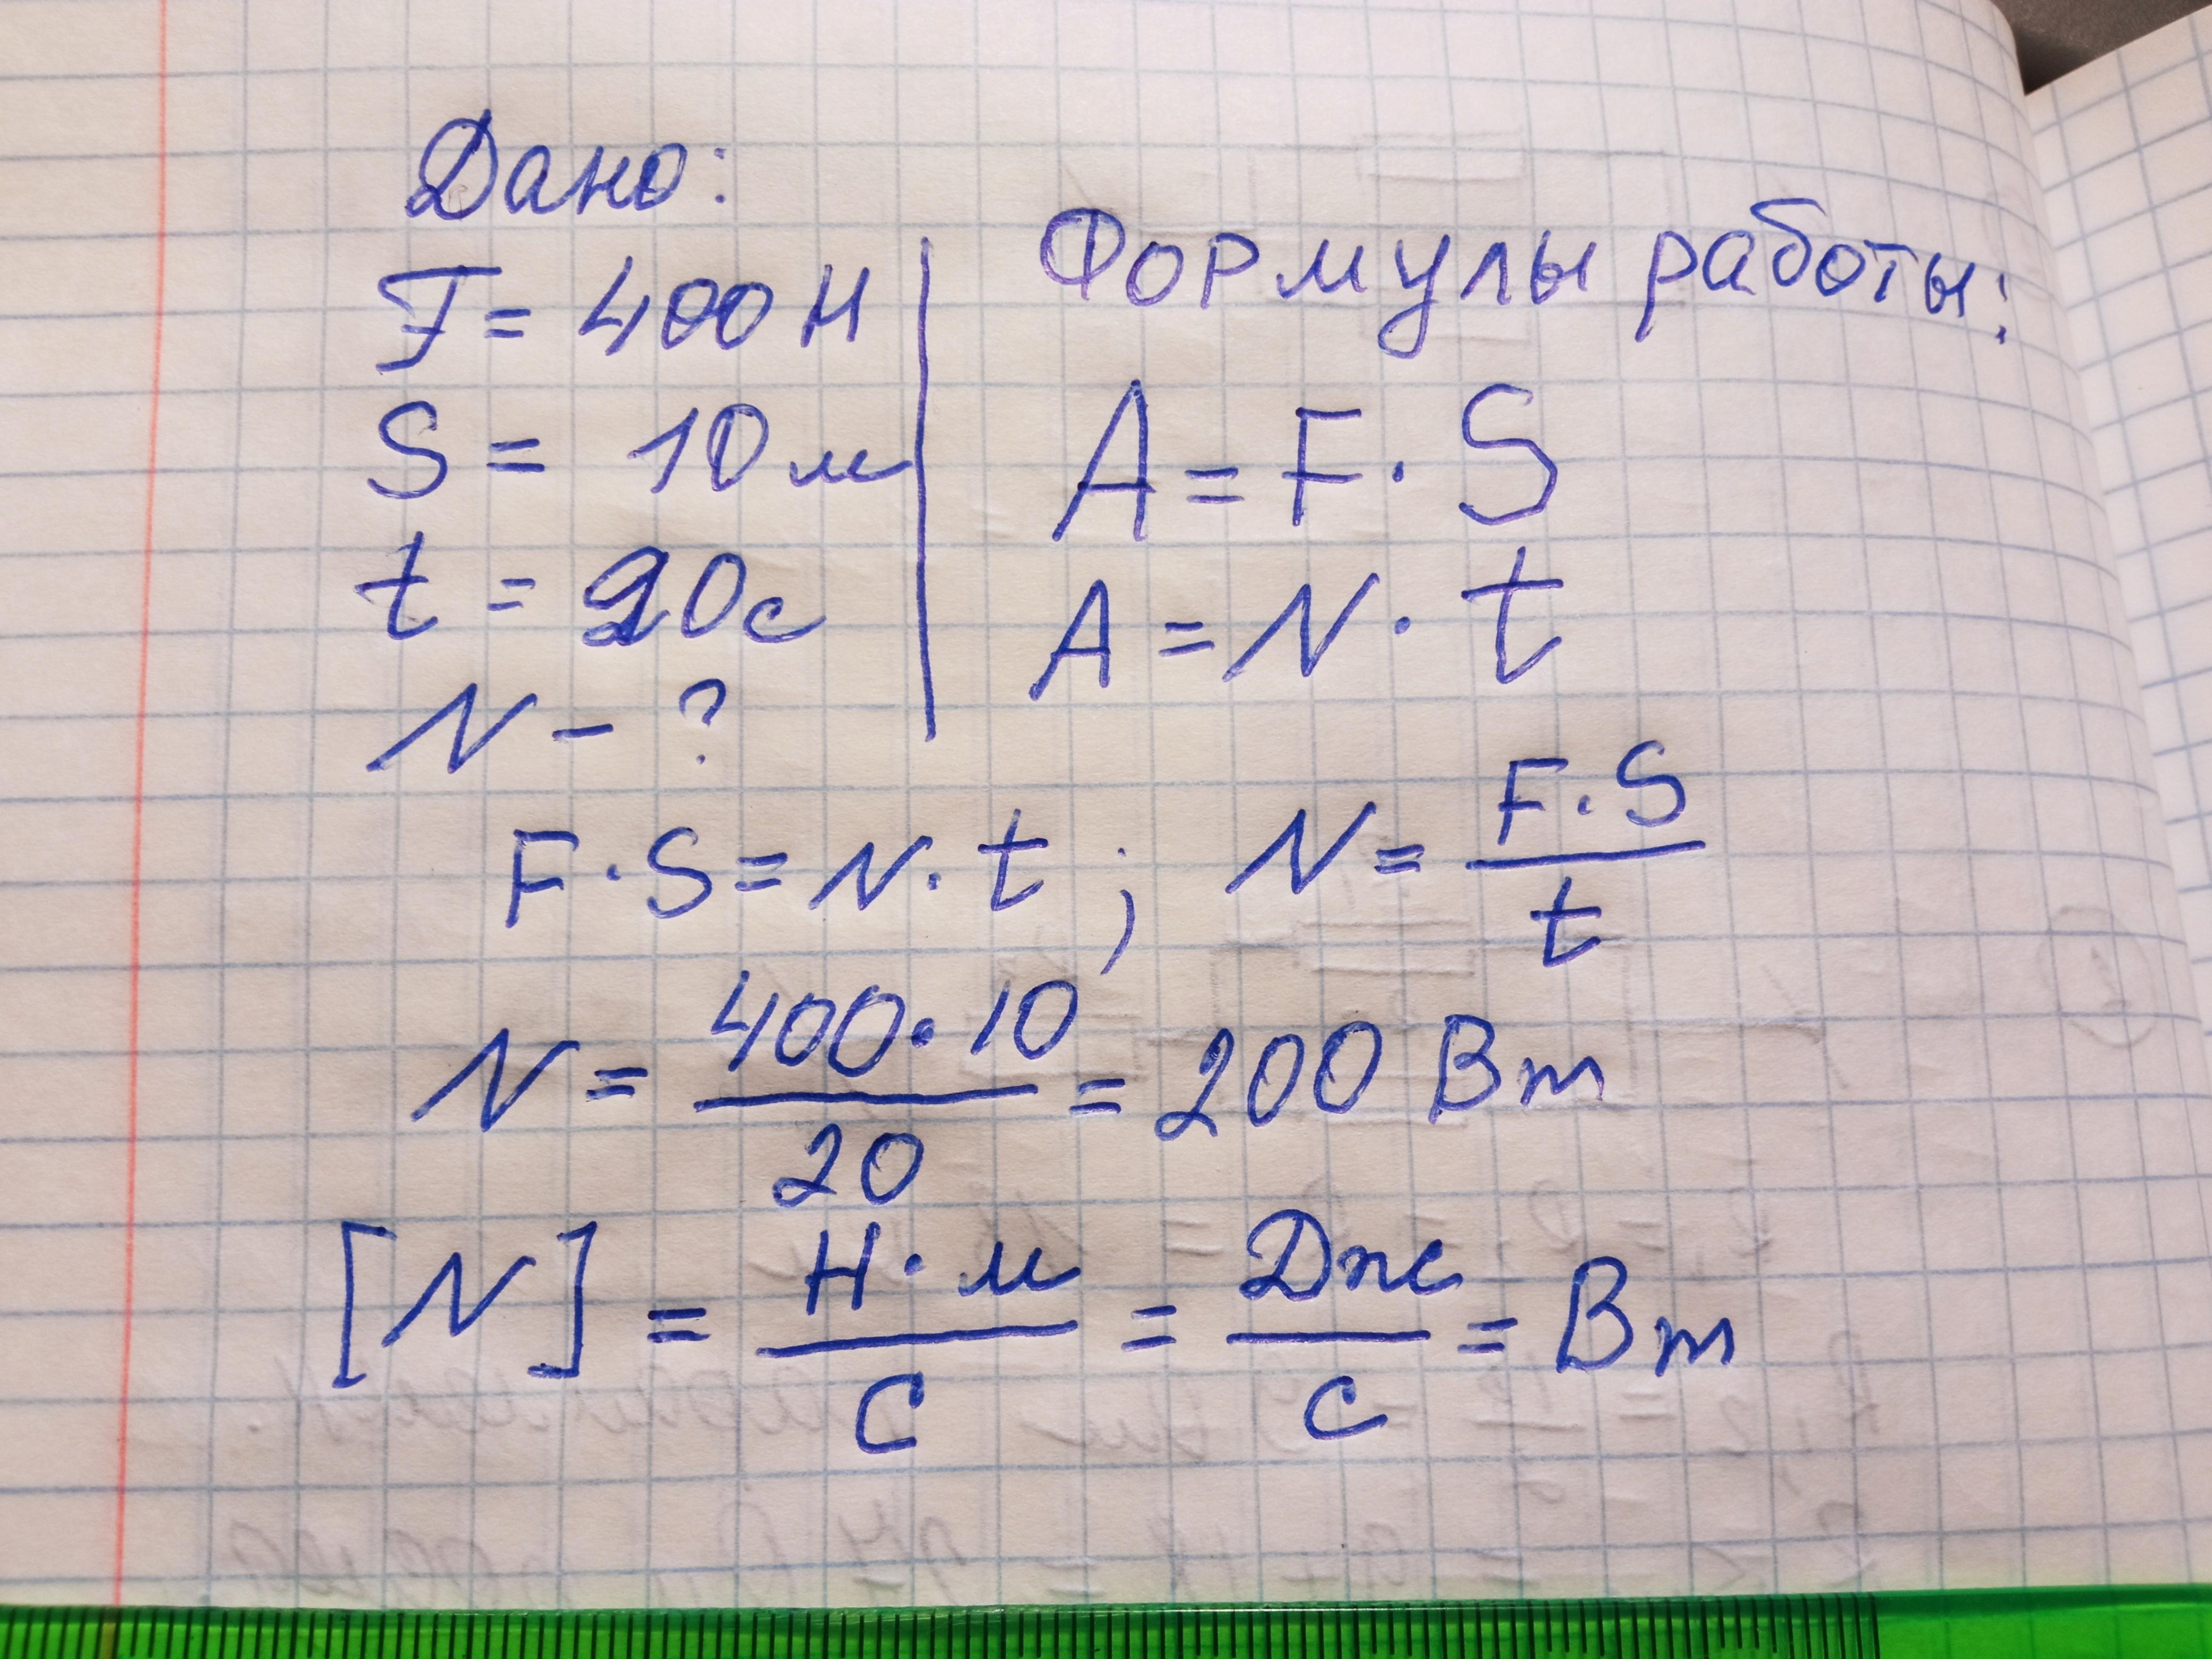 Дано:
F = 400 Н
S = 10 м
t = 20 с
N - ?
Формулы работы:
A = F · S
A = N · t
F · S = N · t ; N = F · S / t
N = 400 · 10 / 20 = 200 Вт
[N] = Н · м / с = Дж / с = Вт